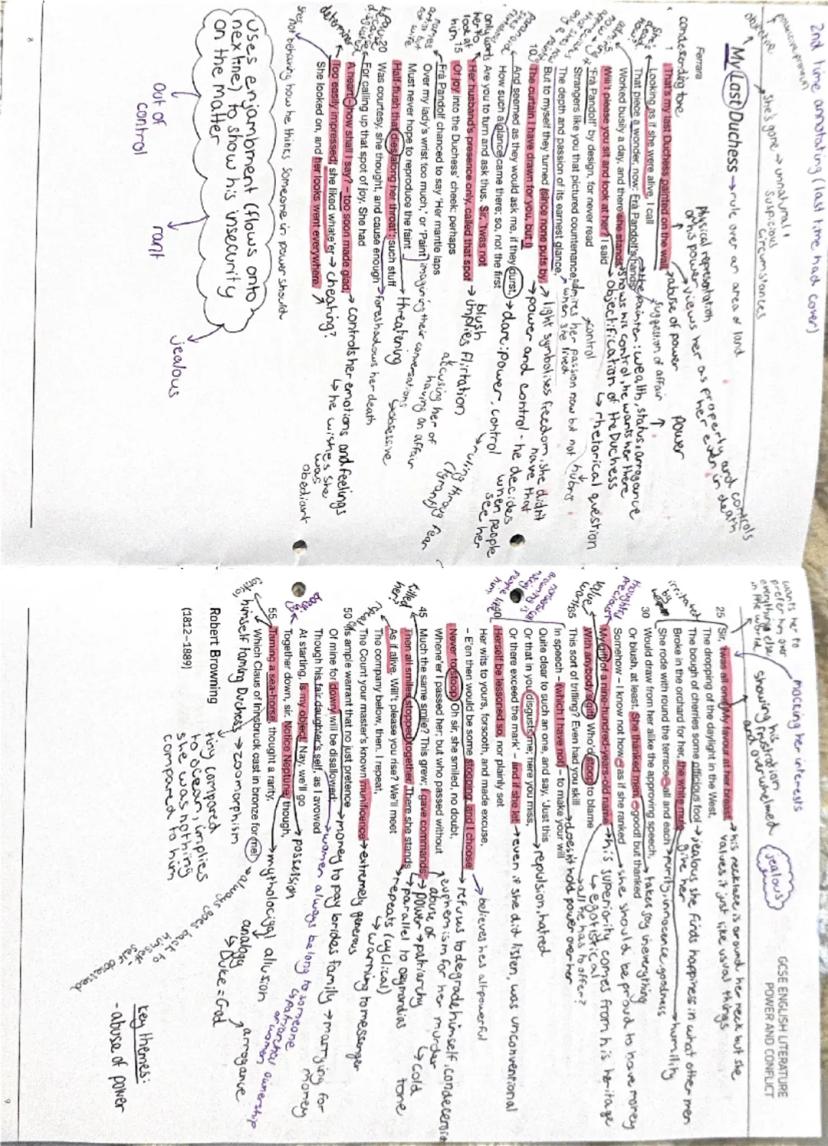 2nd time annotating (last time had cover)
possessive pronoun
objective
My Last Duchess → rule over an area of land
she's gone → unnatural + suspicious circumstances
Ferrara
condescending tone
Physical representation of his power
→ views her as property and controls her even in death
1 That's my last Duchess painted on the wall,
→ abuse of power
power
Looking as if she were alive. I call
suggestion of affair
That piece a wonder, now: Frà Pandolf's hands
→ the painter: wealth, status, arrogance
Worked busily a day, and there she stands.
shows his control, he wants her there
5 Will't please you sit and look at her? I said
→ objectification of the Duchess
→ rhetorical question
'Frà Pandolf' by design, for never read
control
Strangers like you that pictured countenance,
The depth and passion of its earnest glance,
desires her passion now but not when she lived
→ hubris
But to myself they turned (since none puts by
→ light symbolises freedom, she didn't have that
10 The curtain I have drawn for you, but I)
→ power and control - he decides when people see her
And seemed as they would ask me, if they durst,
→ dare: power, control
How such a glance came there; so, not the first
Are you to turn and ask thus. Sir, 'twas not
blush
Her husband's presence only, called that spot
→ implies flirtation
15 Of joy into the Duchess' cheek: perhaps
accusing her of having an affair
Frà Pandolf chanced to say 'Her mantle laps
Over my lady's wrist too much,' or 'Paint
imagining their conversations
Must never hope to reproduce the faint
threatening
obsessive
Half-flush that dies along her throat': such stuff
20 Was courtesy, she thought, and cause enough
→ foreshadows her death
For calling up that spot of joy. She had
A heart – how shall I say? – too soon made glad,
→ controls her emotions and feelings
Too easily impressed; she liked whate'er
→ cheating?
→ he wishes she was obedient
She looked on, and her looks went everywhere.
she's not behaving how he thinks someone in power should
uses enjambment (flows onto next line) to show his insecurity on the matter
out of control
rant
jealous
8
GCSE ENGLISH LITERATURE
POWER AND CONFLICT
mocking her interests
wants her to prefer him over everything else in the world
showing his frustration and overwhelmed
jealous
25 Sir, 'twas all one! My favour at her breast,
→ his necklace is around her neck but she values it just like usual things
The dropping of the daylight in the West,
The bough of cherries some officious fool
→ jealous she finds happiness in what other men give her
Broke in the orchard for her, the white mule
→ humility
She rode with round the terrace – all and each
→ purity, innocence, goodness
30 Would draw from her alike the approving speech,
Or blush, at least. She thanked men, – good! but thanked
→ takes joy in everything
Somehow – I know not how – as if she ranked
→ she should be proud to have money
My gift of a nine-hundred-years-old name
→ his superiority comes from his heritage
→ egotistical
With anybody's gift. Who'd stoop to blame
→ all he has to offer?
35 This sort of trifling? Even had you skill
In speech – (which I have not) – to make your will
→ doesn't hold power over her
Quite clear to such an one, and say, 'Just this
Or that in you disgusts me; here you miss,
→ repulsion, hatred
Or there exceed the mark' – and if she let
→ even if she did listen, was unconventional
40 Herself be lessoned so, nor plainly set
Her wits to yours, forsooth, and made excuse,
→ believes he's all powerful
– E'en then would be some stooping; and I choose
→ refuses to degrade himself, condescending
Never to stoop. Oh sir, she smiled, no doubt,
Whene'er I passed her; but who passed without
→ euphemism for her murder
45 Much the same smile? This grew; I gave commands;
abuse of power → patriarchy
→ cold tone
Then all smiles stopped together. There she stands
→ parallel to Ozymandias
As if alive. Will't please you rise? We'll meet
→ repeats (cyclical)
The Company below, then. I repeat,
→ warning to messenger
The Count your master's known munificence
→ extremely generous
50 Is ample warrant that no just pretence
Of mine for dowry will be disallowed;
→ money to pay brides family → marrying for money
Though his fair daughter's self, as I avowed
→ women always belong to someone
At starting, is my object. Nay, we'll go
→ possession
Together down, sir. Notice Neptune, though,
55 Taming a sea-horse, thought a rarity,
→ mythological allusion
Which Claus of Innsbruck cast in bronze for me!
himself taming Duchess → zoomorphism
analogy
→ Duke = God
arrogance
always goes back to himself
self obsessed
Robert Browning
(1812–1889)
tiny compared to ocean, implies she was nothing compared to him
key themes:
- abuse of power
9